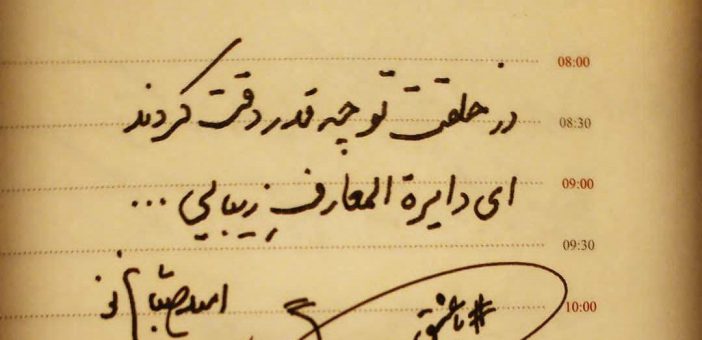 در خلقت تو چه قدر دقت کردند
08:00
08:30
ای دایرة المعارف زیبایی ...
09:00
09:30
امید صباغ نو
10:00